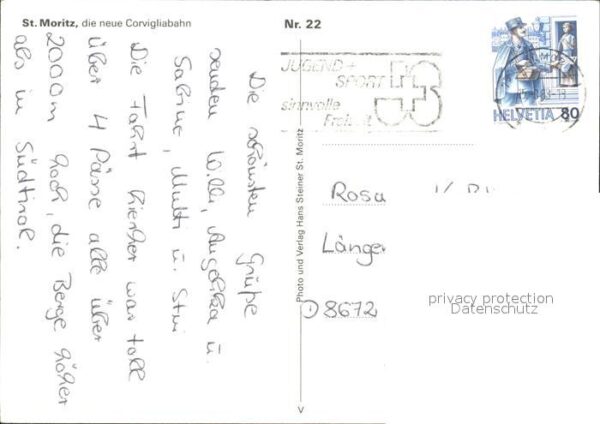 St. Moritz, die neue Corvigliabahn
Nr. 22
JUGEND +
SPORT
sinnvolle
Freizeit
HELVETIA 80
Die schönsten Grüße
senden Willi, Angelika u.
Sabine, Mutti u.
Die Fahrt hierher war toll
über 4 Pässe alle über
2000m hoch, die Berge höher
als in Südtirol.
Photo und Verlag Hans Steiner St. Moritz
V
Rosa
Länger
8672
privacy protection
Datenschutz